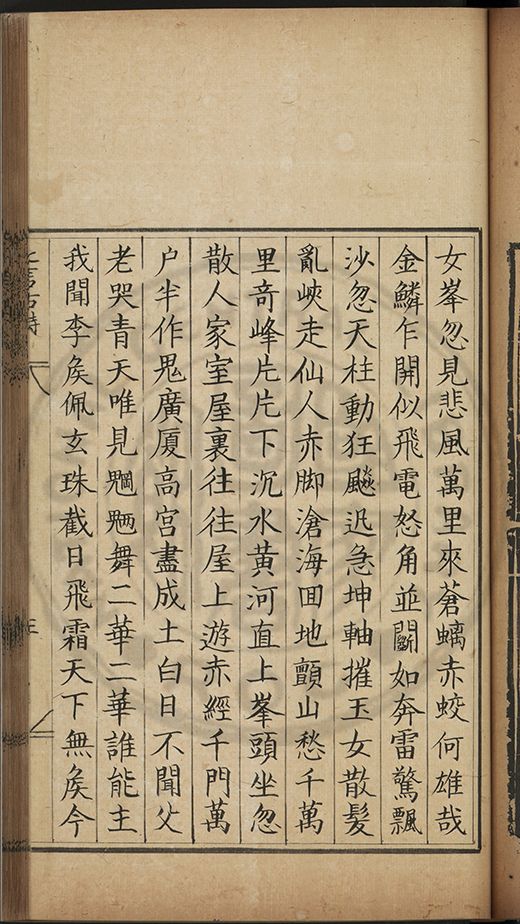 女峯忽見悲風萬里來蒼螭赤蛟何雄哉
金鱗乍開似飛電怒角並鬬如奔雷驚飄
沙忽天柱動狂飈迅急坤軸摧玉女散髮
亂峽走仙人赤脚滄海囬地顫山愁千萬
里奇峰片片下沉水黄河直上峯頭坐忽
散人家室屋裏往往屋上遊赤經千門萬
户半作鬼廣厦高宫盡成土白日不聞父
老哭青天唯見魍魎舞二華二華誰能主
我聞李矦佩玄珠截日飛霜天下無矦今
七言古詩